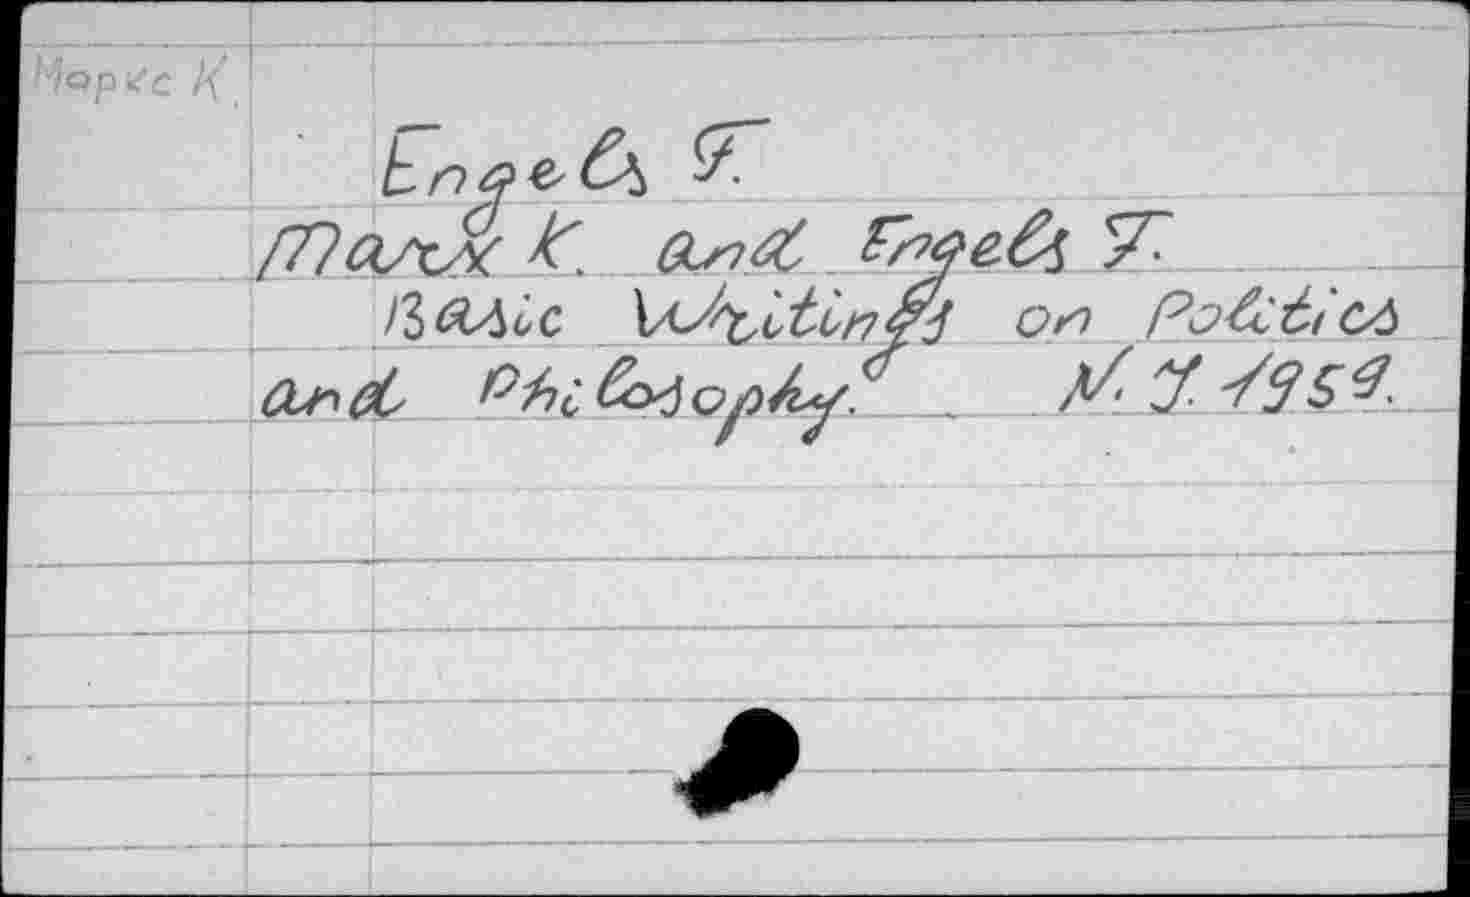 Маркс К.
Engels F.
Marx K. and Engels F.
Basic Writings on Politics
and Philosophy. N.Y. 1959.